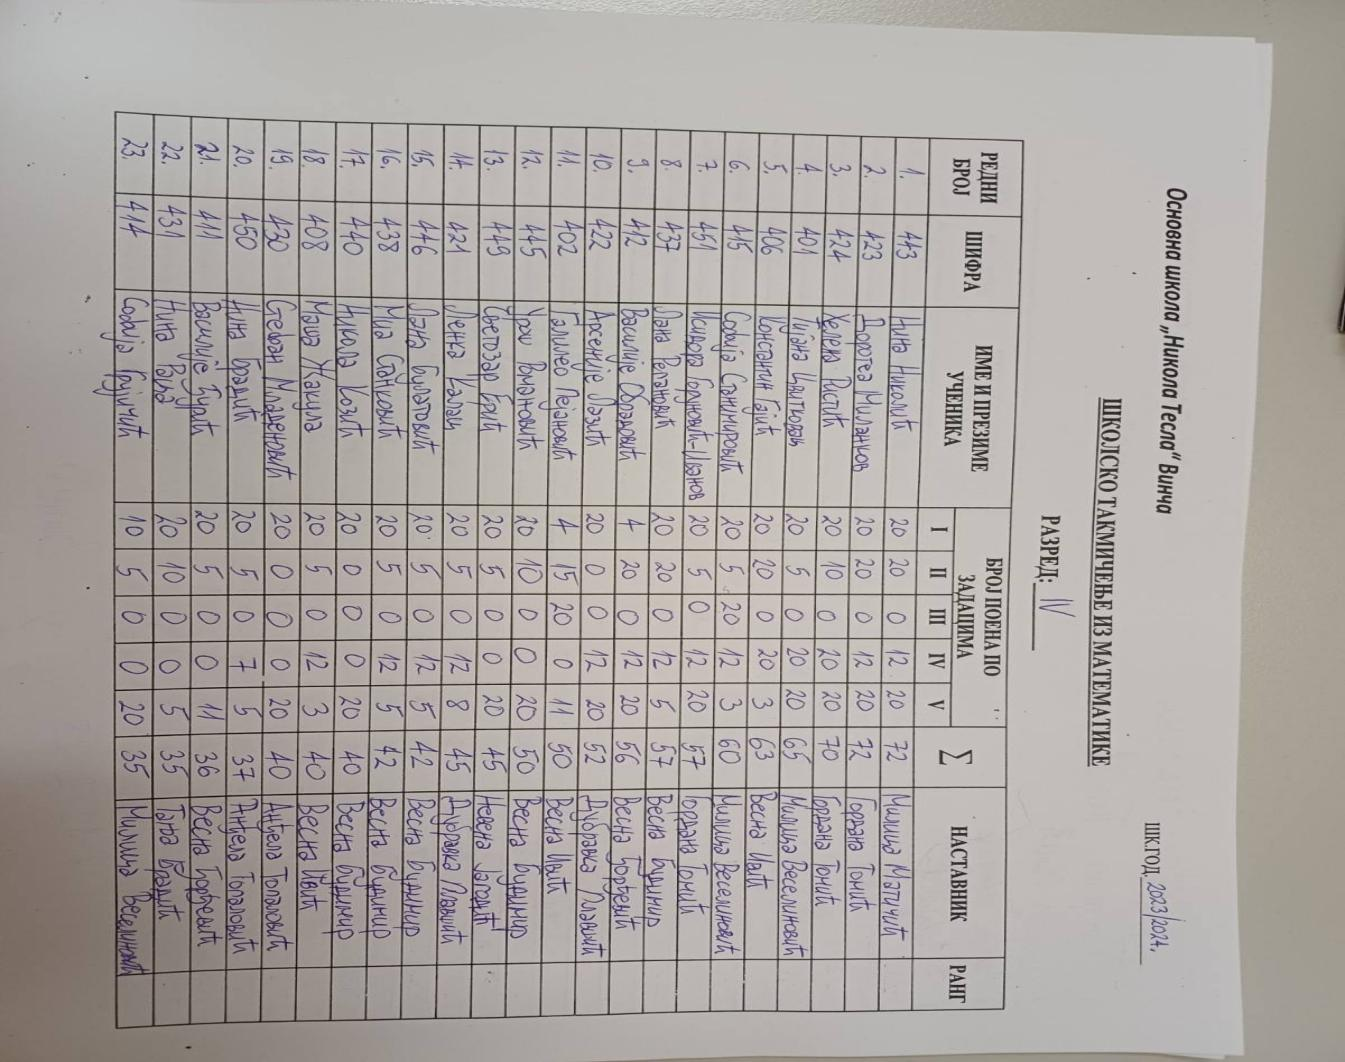 Основна школа „Никола Тесла“ Винча
ШК.ГОД. 2023/2024.
ШКОЛСКО ТАКМИЧЕЊЕ ИЗ МАТЕМАТИКЕ
РАЗРЕД: IV
РЕДНИ БРОЈ ШИФРА ИМЕ И ПРЕЗИМЕ УЧЕНИКА БРОЈ ПОЕНА ПО ЗАДАЦИМА Σ НАСТАВНИК РАНГ
I II III IV V
1. 443 Нина Николић 20 20 0 12 20 72 Милица Матичић
2. 423 Доротеа Миланков 20 20 0 12 20 72 Гордана Томић
3. 424 Хелена Ристић 20 10 0 20 20 70 Гордана Томић
4. 401 Тијана 20 5 0 20 20 65 Милица Веселиновић
5. 406 Константин Гајић 20 20 0 20 3 63 Весна Ивић
6. 415 Софија Станимировић 20 5 20 12 3 60 Милица Веселиновић
7. 451 Исидора 20 5 0 12 20 57 Гордана Томић
8. 437 Лана 20 20 0 12 5 57 Весна Будимир
9. 412 Василије Обрадовић 4 20 0 12 20 56 Весна Ђорђевић
10. 422 Арсеније Лазић 20 0 0 12 20 52 Дубравка Главинић
11. 402 Галилео Рејановић 4 15 20 0 11 50 Весна Ивић
12. 445 Урош 20 10 0 0 20 50 Весна Будимир
13. 449 Светозар Ерић 20 5 0 0 20 45 Невена Јагодић
14. 421 Ленка 20 5 0 12 8 45 Дубравка Главинић
15. 446 Лана Булатовић 20 5 0 12 5 42 Весна Будимир
16. 438 Миа Станковић 20 5 0 12 5 42 Весна Будимир
17. 440 Никола Козић 20 0 0 0 20 40 Весна Будимир
18. 408 Маша Жакула 20 5 0 12 3 40 Весна Ивић
19. 430 Стефан Младеновић 20 0 0 0 20 40 Анђела Топаловић
20. 450 Нина Брадић 20 5 0 7 5 37 Анђела Топаловић
21. 411 Василије Ђурић 20 5 0 0 11 36 Весна Ђорђевић
22. 431 Нина 20 10 0 0 5 35
23. 414 Софија Грујичић 10 5 0 0 20 35 Милица Веселиновић